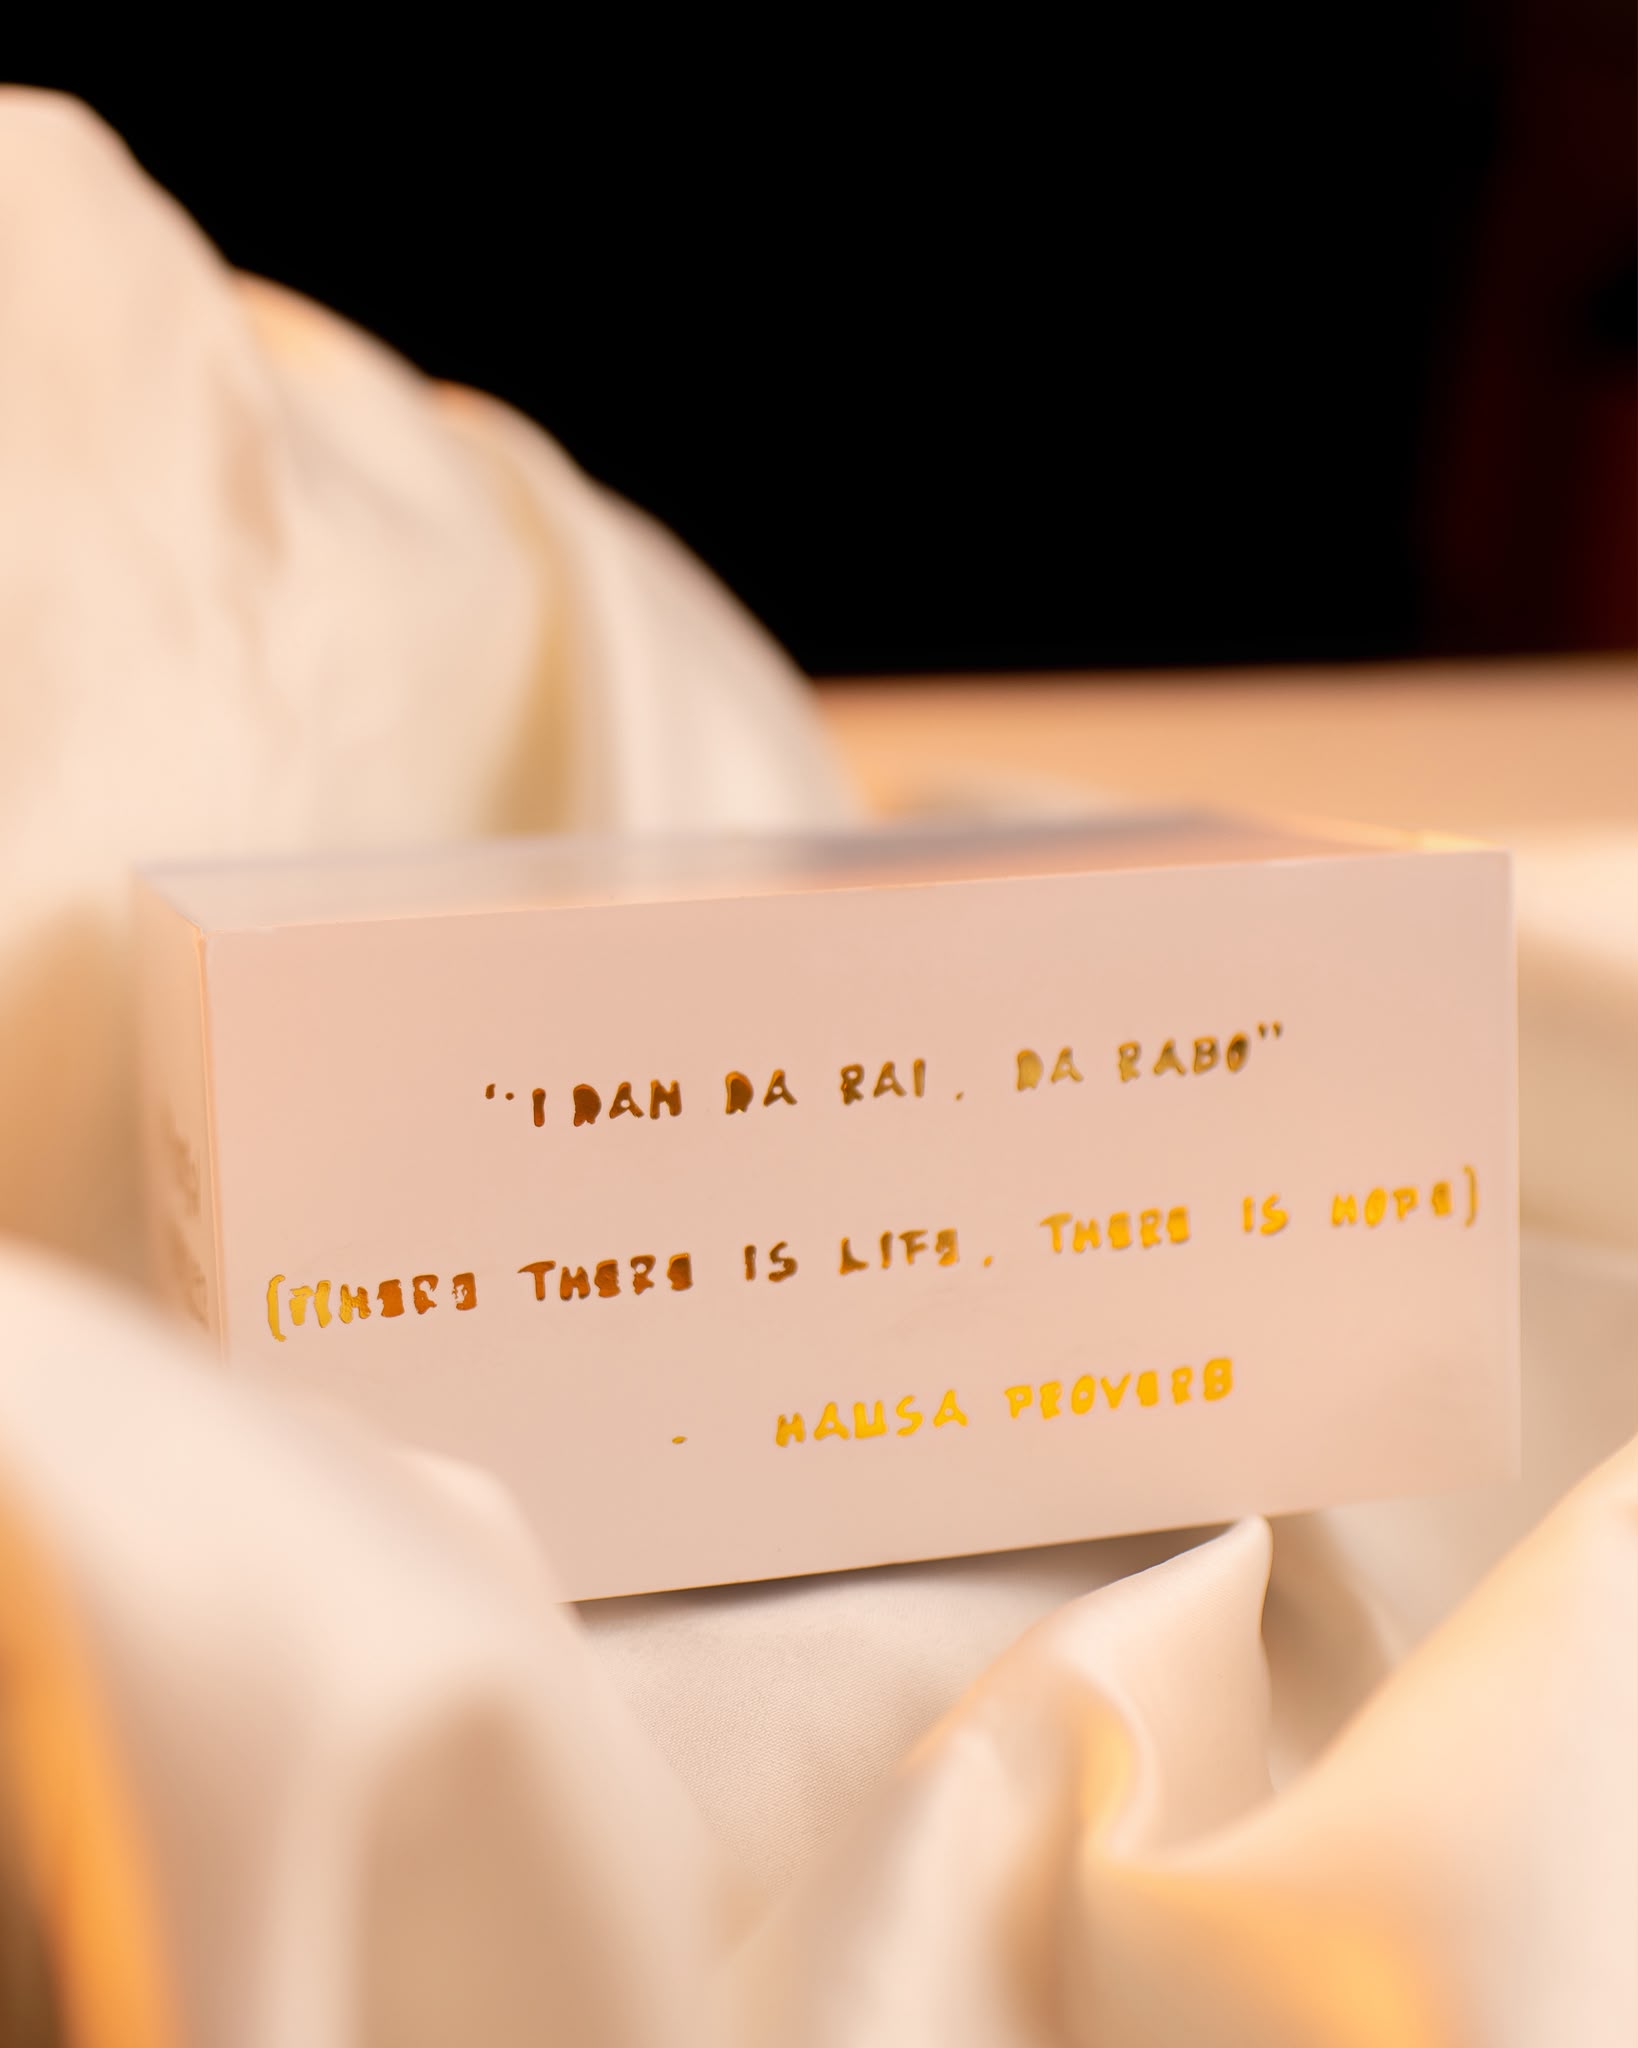 "I DAN DA RAI, DA RABO"
(WHERE THERE IS LIFE, THERE IS HOPE)
- HAUSA PROVERB